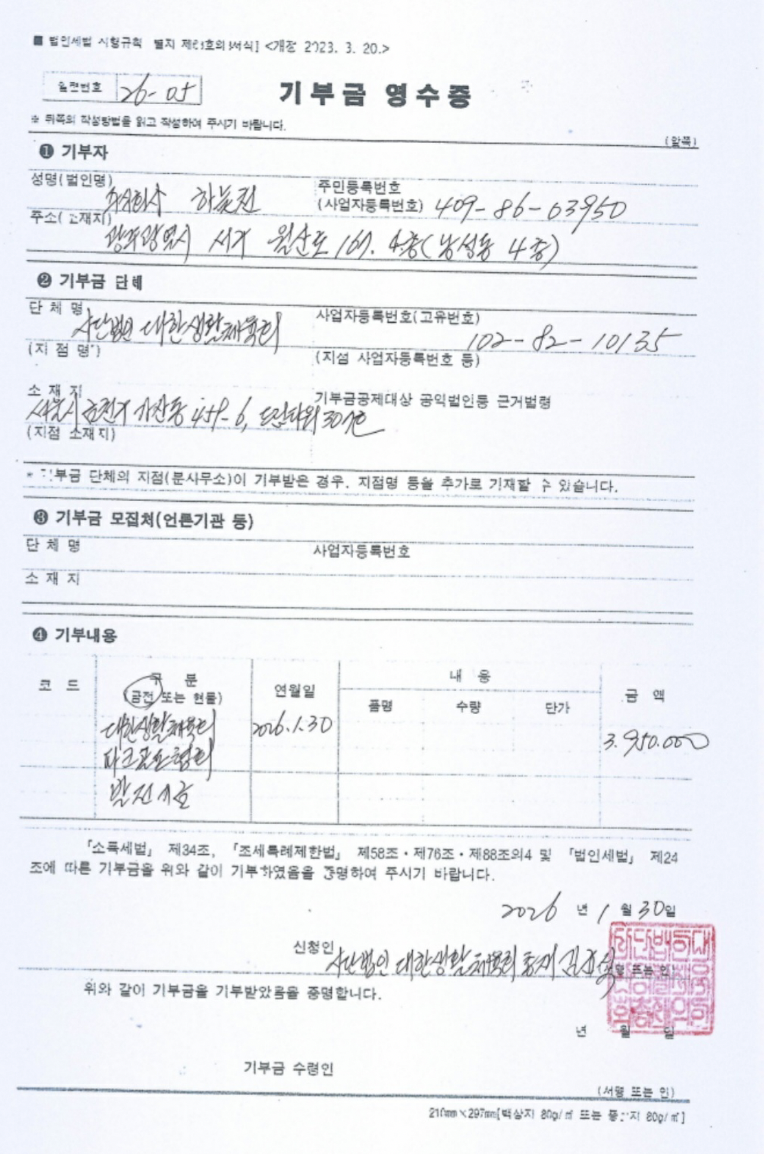 ■ 법인세법 시행규칙 별지 제63호의3서식] <개정 2023. 3. 20.>
일련번호 26-05
기부금 영수증
※ 뒤쪽의 작성방법을 읽고 작성하여 주시기 바랍니다.
(앞쪽)
❶ 기부자
성명(법인명) 주식회사 하늘전
주민등록번호
(사업자등록번호) 409-86-03950
주소(소재지) 광주광역시 서구 월산로 167. 4층(농성동 4층)
❷ 기부금 단체
단 체 명 사단법인 대한생활체육회
사업자등록번호(고유번호) 102-82-10135
(지 점 명*)
(지점 사업자등록번호 등)
소 재 지 서울시 금천구 가산동 459-6,
기부금공제대상 공익법인등 근거법령
(지점 소재지)
* 기부금 단체의 지점(분사무소)이 기부받은 경우, 지점명 등을 추가로 기재할 수 있습니다.
❸ 기부금 모집처(언론기관 등)
단 체 명
사업자등록번호
소 재 지
❹ 기부내용
코 드
구 분
(금전 또는 현물)
연월일
내 용
품명
수량
단가
금 액
대한생활체육회
파크골프협회
발전기금
2026.1.30
3.950.000
「소득세법」 제34조, 「조세특례제한법」 제58조·제76조·제88조의4 및 「법인세법」 제24
조에 따른 기부금을 위와 같이 기부하였음을 증명하여 주시기 바랍니다.
2026 년 1 월 30일
신청인 사단법인 대한생활체육회 총재 (서명 또는 인)
위와 같이 기부금을 기부받았음을 증명합니다.
년 월 일
기부금 수령인
(서명 또는 인)
210mm×297mm[백상지 80g/㎡ 또는 중질지 80g/㎡]